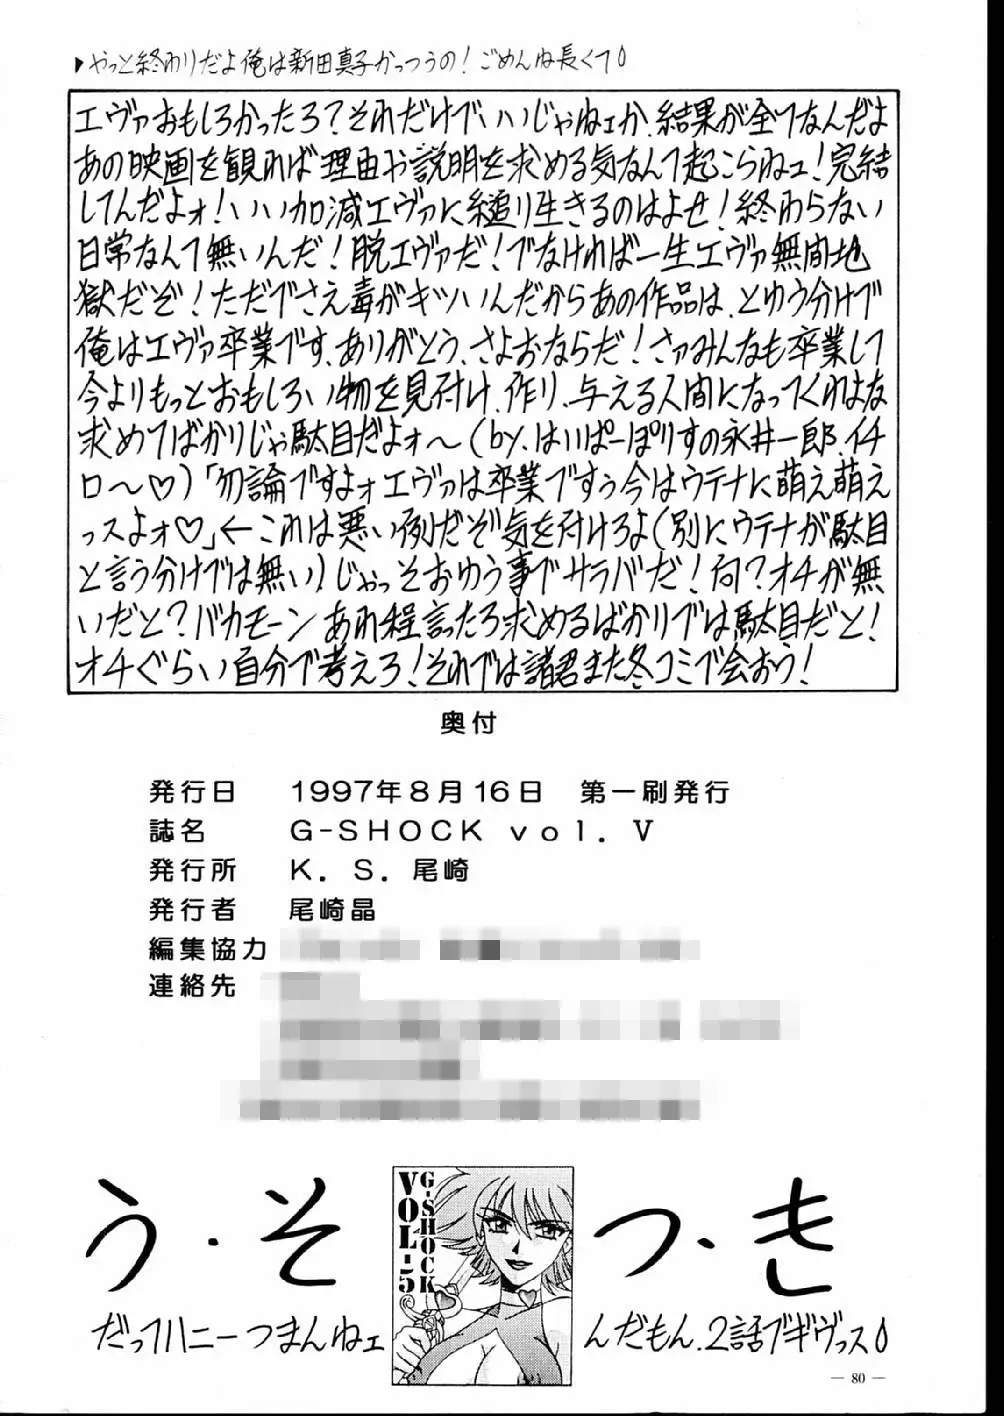 ▶やっと終わりだよ俺は新田真子かっつうの!ごめんね長くて
エヴァおもしろかったろ?それだけでいいじゃねェか、結果が全てなんだよ
あの映画を観れば理由や説明を求める気なんて起こらねェ!完結
してんだよォ!いいい加減エヴァに縋り生きるのはよせ!終わらない
日常なんて無いんだ!脱エヴァだ!でなければ一生エヴァ無間地
獄だぞ!ただでさえ毒がキツいんだからあの作品は、とゆう分けで
俺はエヴァ卒業です、ありがとう、さよおならだ!さァみんなも卒業して
今よりもっとおもしろい物を見付け、作り、与える人間になってくれはな
求めてばかりじゃ駄目だよォ〜(by.はいぱーぽりすの永井一郎、イチ
ロ〜♡)「勿論ですよォエヴァは卒業ですぅ今はウテナに萌え萌え
っスよォ♡」←これは悪い例だぞ気を付けろよ(別にウテナが駄目
と言う分けでは無い)じゃっそおゆう事でサラバだ!何?オチが無
いだと?バカモーン あれ程言ったろ求めるばかりでは駄目だと!
オチぐらい自分で考えろ!それでは諸君また冬コミで会おう!
奥付
発行日 1997年8月16日 第一刷発行
誌名 G-SHOCK vol. V
発行所 K. S. 尾崎
発行者 尾崎晶
編集協力
連絡先
う・そ つ・き
G-SHOCK
VOL-5
だってハニーつまんねェ んだもん、2話でギヴっス
— 80 —